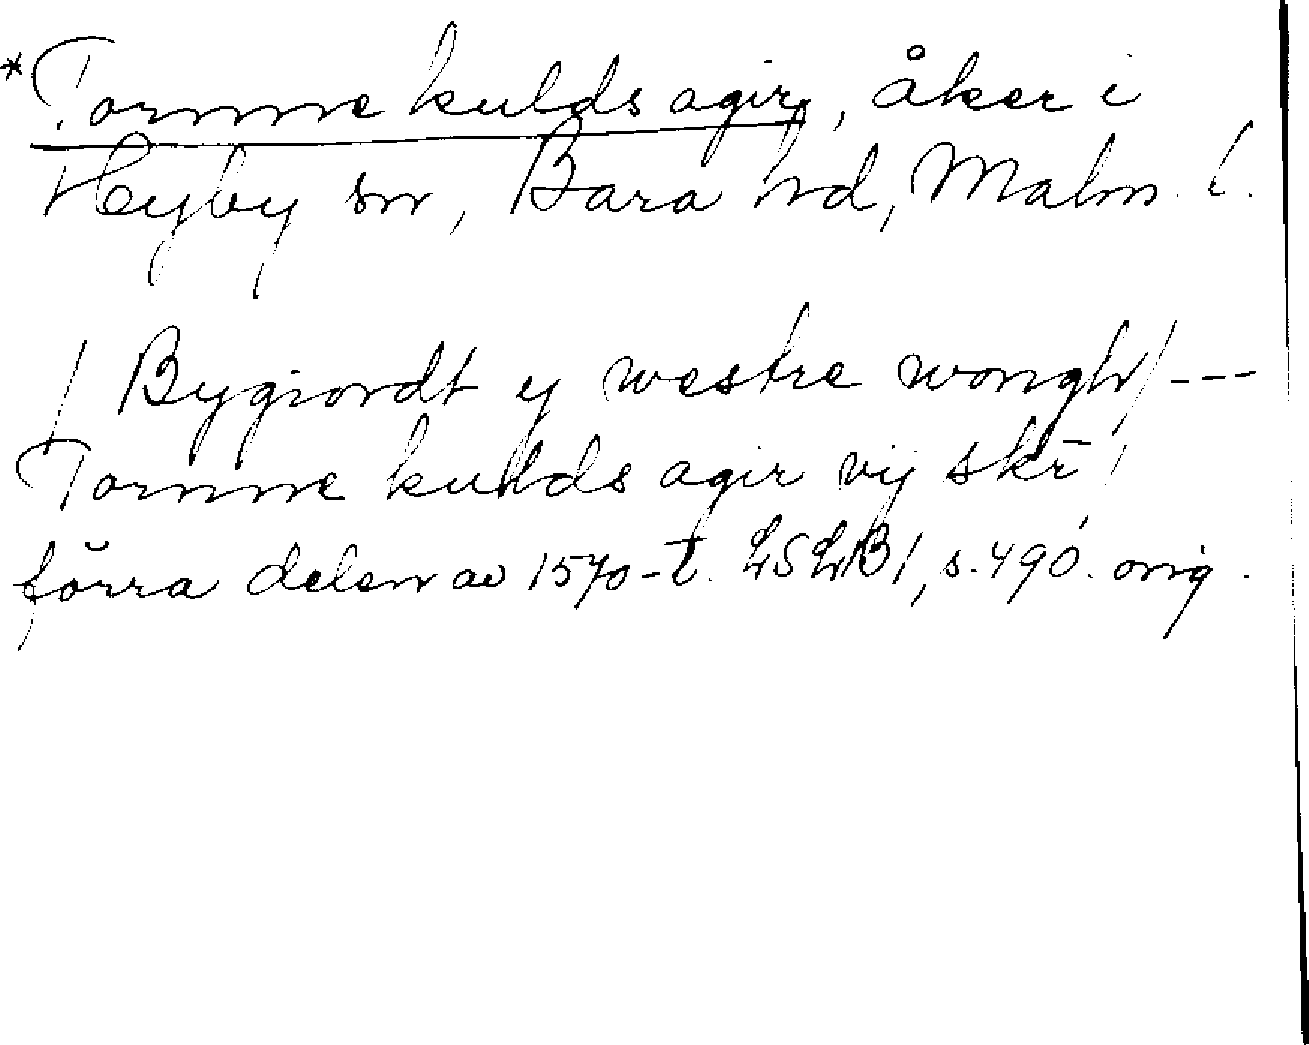 *Tornne kulds agir, åker i
Hyby sn, Bara hd, Malm. l.
/ Bygiordt y westre wongh/ ---
Tornne kulds agir vij skr̄ /
förra delen av 1570-t. LSLB1, s. 490. orig.